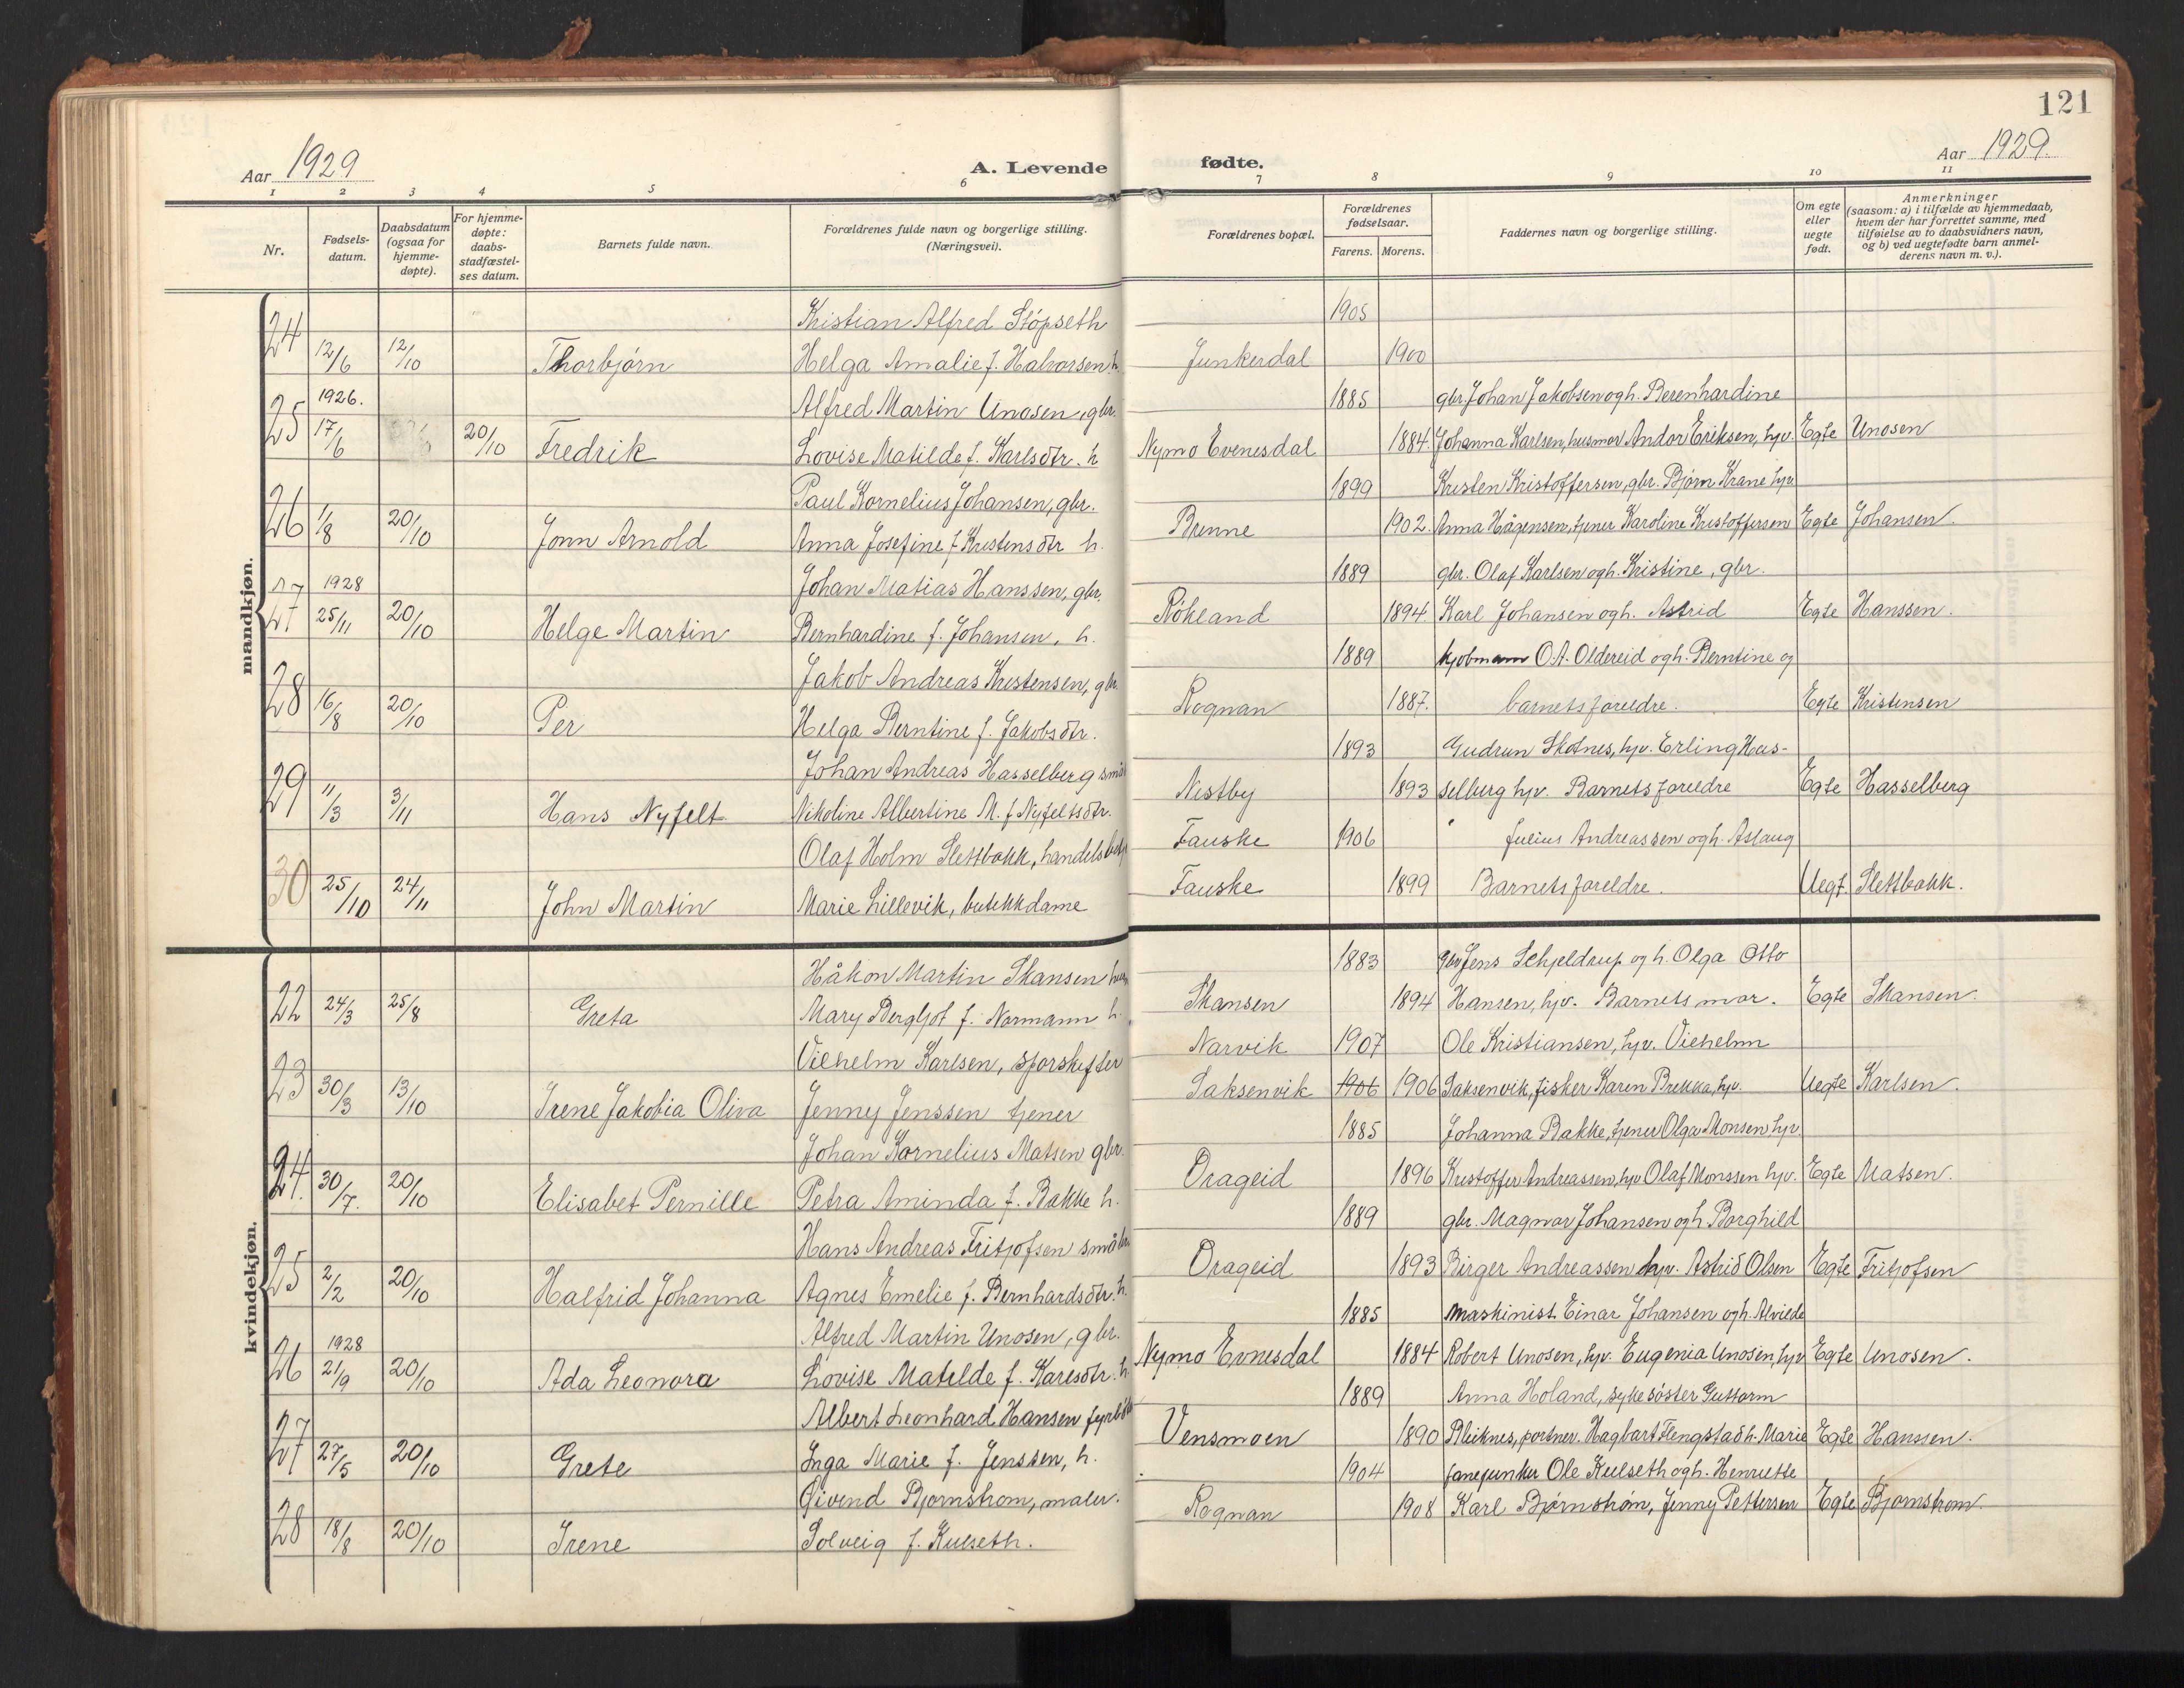 121
Aar 1929
A. Levende fødte.
Aar 1929.
1 2 3 4 5 6 7 8 9 10 11
Nr.
Fødsels-
datum.
Daabsdatum
(ogsaa for
hjemme-
døpte).
For hjemme-
døpte:
daabs-
stadfæstel-
ses datum.
Barnets fulde navn.
Forældrenes fulde navn og borgerlige stilling.
(Næringsvei).
Forældrenes bopæl.
Forældrenes
fødselsaar.
Farens. Morens.
Faddernes navn og borgerlige stilling.
Om egte
eller
uegte
født.
Anmerkninger
(saasom: a) i tilfælde av hjemmedaab,
hvem der har forrettet samme, med
tilføielse av to daabsvidners navn,
og b) ved uegtefødte barn anmel-
derens navn m. v.).
mandkjøn.
Kristian Alfred Støpseth 1905
24 12/6 12/10 Thorbjørn Helga Amalie f. Halvorsen. h. Junkerdal 1900
1926. Alfred Martin Unosen, gbr. 1885 gbr. Johan Jakobsen og h. Berenhardine
25 17/6 20/10 Fredrik Lovise Matilde f. Karlsdtr. h Nymo Evenesdal 1884. Johanna Karlsen, husmor Andor Eriksen, hjv. Egte Unosen
Paul Kornelius Johansen, gbr. 1899 Kristen Kristoffersen, gbr. Bjørn Krane hjv
26 1/8 20/10 Jonn Arnold Anna Josefine f. Kristensdtr h. Brenne 1902. Anna Hågensen, tjener Karoline Kristoffersen Egte Johansen.
1928 Johan Matias Hanssen, gbr. 1889 gbr. Olaf Karlsen og h. Kristine, gbr.
27 25/11 20/10 Helge Martin Bernhardine f. Johansen, h. Røkland 1894 Karl Johansen og h. Astrid Egte Hanssen.
Jakob Andreas Kristensen, gbr. 1889 kjøbmann O.A. Oldereid og h. Berntine og
28 16/8 20/10 Per Helga Berntine f. Jakobsdtr. Rognan 1887. barnets foreldre. Egte Kristensen
Johan Andreas Hasselberg små 1893 Gudrun Skotnes, hjv. Erling Has-
29 11/3 3/11 Hans Nyfelt Nikoline Albertine M. f Nyfeltsdtr. Nestby 1893 selberg hjv. Barnets foreldre Egte Hasselberg
Olaf Holm Slettbakk, handelsbetj Fauske 1906 Julius Andreassen og h. Aslaug
30 25/10 24/11 John Martin Marie Lillevik, butikkdame Fauske 1899 Barnets foreldre. Uegt. Slettbakk.
kvindekjøn.
Håkon Martin Skansen 1883 Gbr Jens Schjeldrup og h. Olga Otto
22 24/3 25/8 Greta Mary Bergljot f. Normann h. Skansen 1894 Hansen, hjv. Barnets mor. Egte Skansen.
Vilhelm Karlsen, sporskifter Narvik 1907 Ole Kristiansen, hjv. Vilhelm
23 30/3 13/10 Irene Jakobia Oliva Jenny Jenssen tjener Saksenvik 1906 1906 Saksenvik, fisker Karen Brekka, hjv. Uegte Karlsen.
Johan Kornelius Matsen gbr. 1885 Johanna Bakke, tjener Olga Monsen hjv.
24. 30/7. 20/10 Elisabet Pernille Petra Aminda f. Bakke h. Drageid 1896 Kristoffer Andreassen, hjv Olaf Monssen hjv. Egte Matsen.
Hans Andreas Fritjofsen småbr 1889 gbr. Magnar Johansen og h. Borghild
25 2/2 20/10 Halfrid Johanna Agnes Emelie f. Bernhardsdtr. h. Drageid 1893 Birger Andreassen hjv. Astrid Olsen Egte Fritjofsen
1928 Alfred Martin Unosen, gbr. 1885 maskinist Einar Johansen og h. Alvilde
26 21/9 20/10 Ada Leonora Lovise Matilde f. Karlsdtr. h. Nymo Evnesdal 1884 Robert Unosen, hjv. Eugenia Unosen, hjv Egte Unosen.
Albert Leonhard Hansen fyrbøt 1889 Anna Holand, sykesøster Guttorm
27 27/5 20/10 Grete Inga Marie f. Jenssen, h. Vensmoen 1890 Bleiknes, portner. Hagbart Flengstad h. Marie Egte Hanssen.
Øivend Bjørnstrøm, maler. 1904 fanejunker Ole Kulseth og h. Henriette
28 18/8 20/10 Irene Solveig f. Kulseth. Rognan 1908 Karl Bjørnstrøm, Jenny Pettersen Egte Bjørnstrøm.